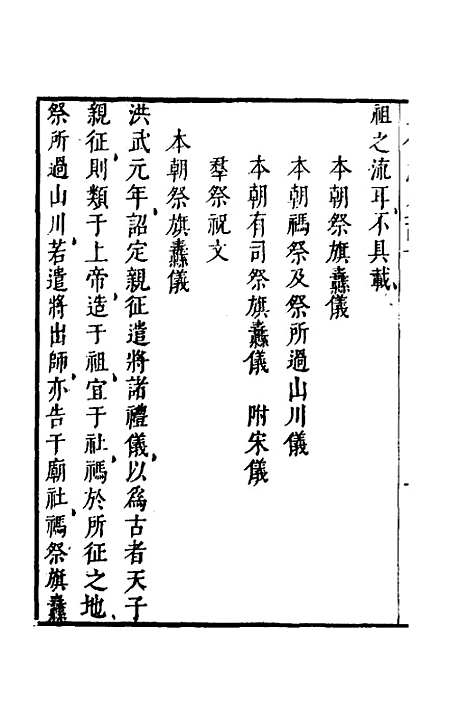 祖之流耳不具載
本朝祭旗纛儀
本朝禡祭及祭所過山川儀
本朝有司祭旗纛儀　附宋儀
羣祭祝文
本朝祭旗纛儀
洪武元年詔定親征遣將諸禮儀以為古者天子
親征則類于上帝造于祖宜于社禡於所征之地
祭所過山川若遣將出師亦告于廟社禡祭旗纛